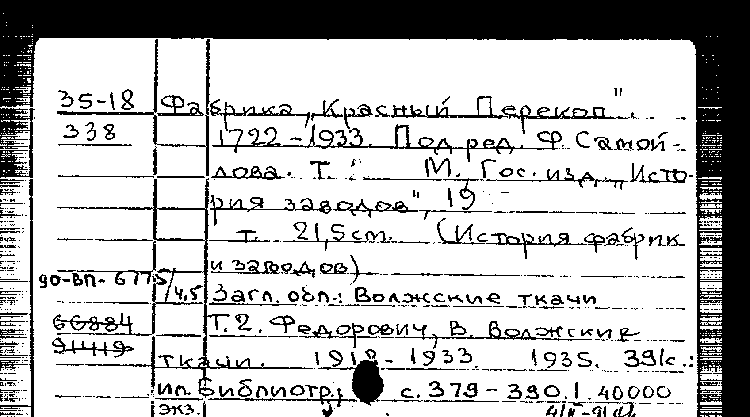 35-18 Фабрика „Красный Перекоп".
338 1722-1933. Под ред. Ф. Самой-
лова. Т. М., Гос. изд. „Исто-
рия заводов", 19
т. 21,5 см. (История фабрик
и заводов)
90-ВП-6775/4,5 Загл. обл.: Волжские ткачи
66884 Т.2. Федорович, В. Волжские
91419 ткачи. 1918-1933. 1935. 391с.:
ил. Библиогр.: с. 379-390. 40000
экз.